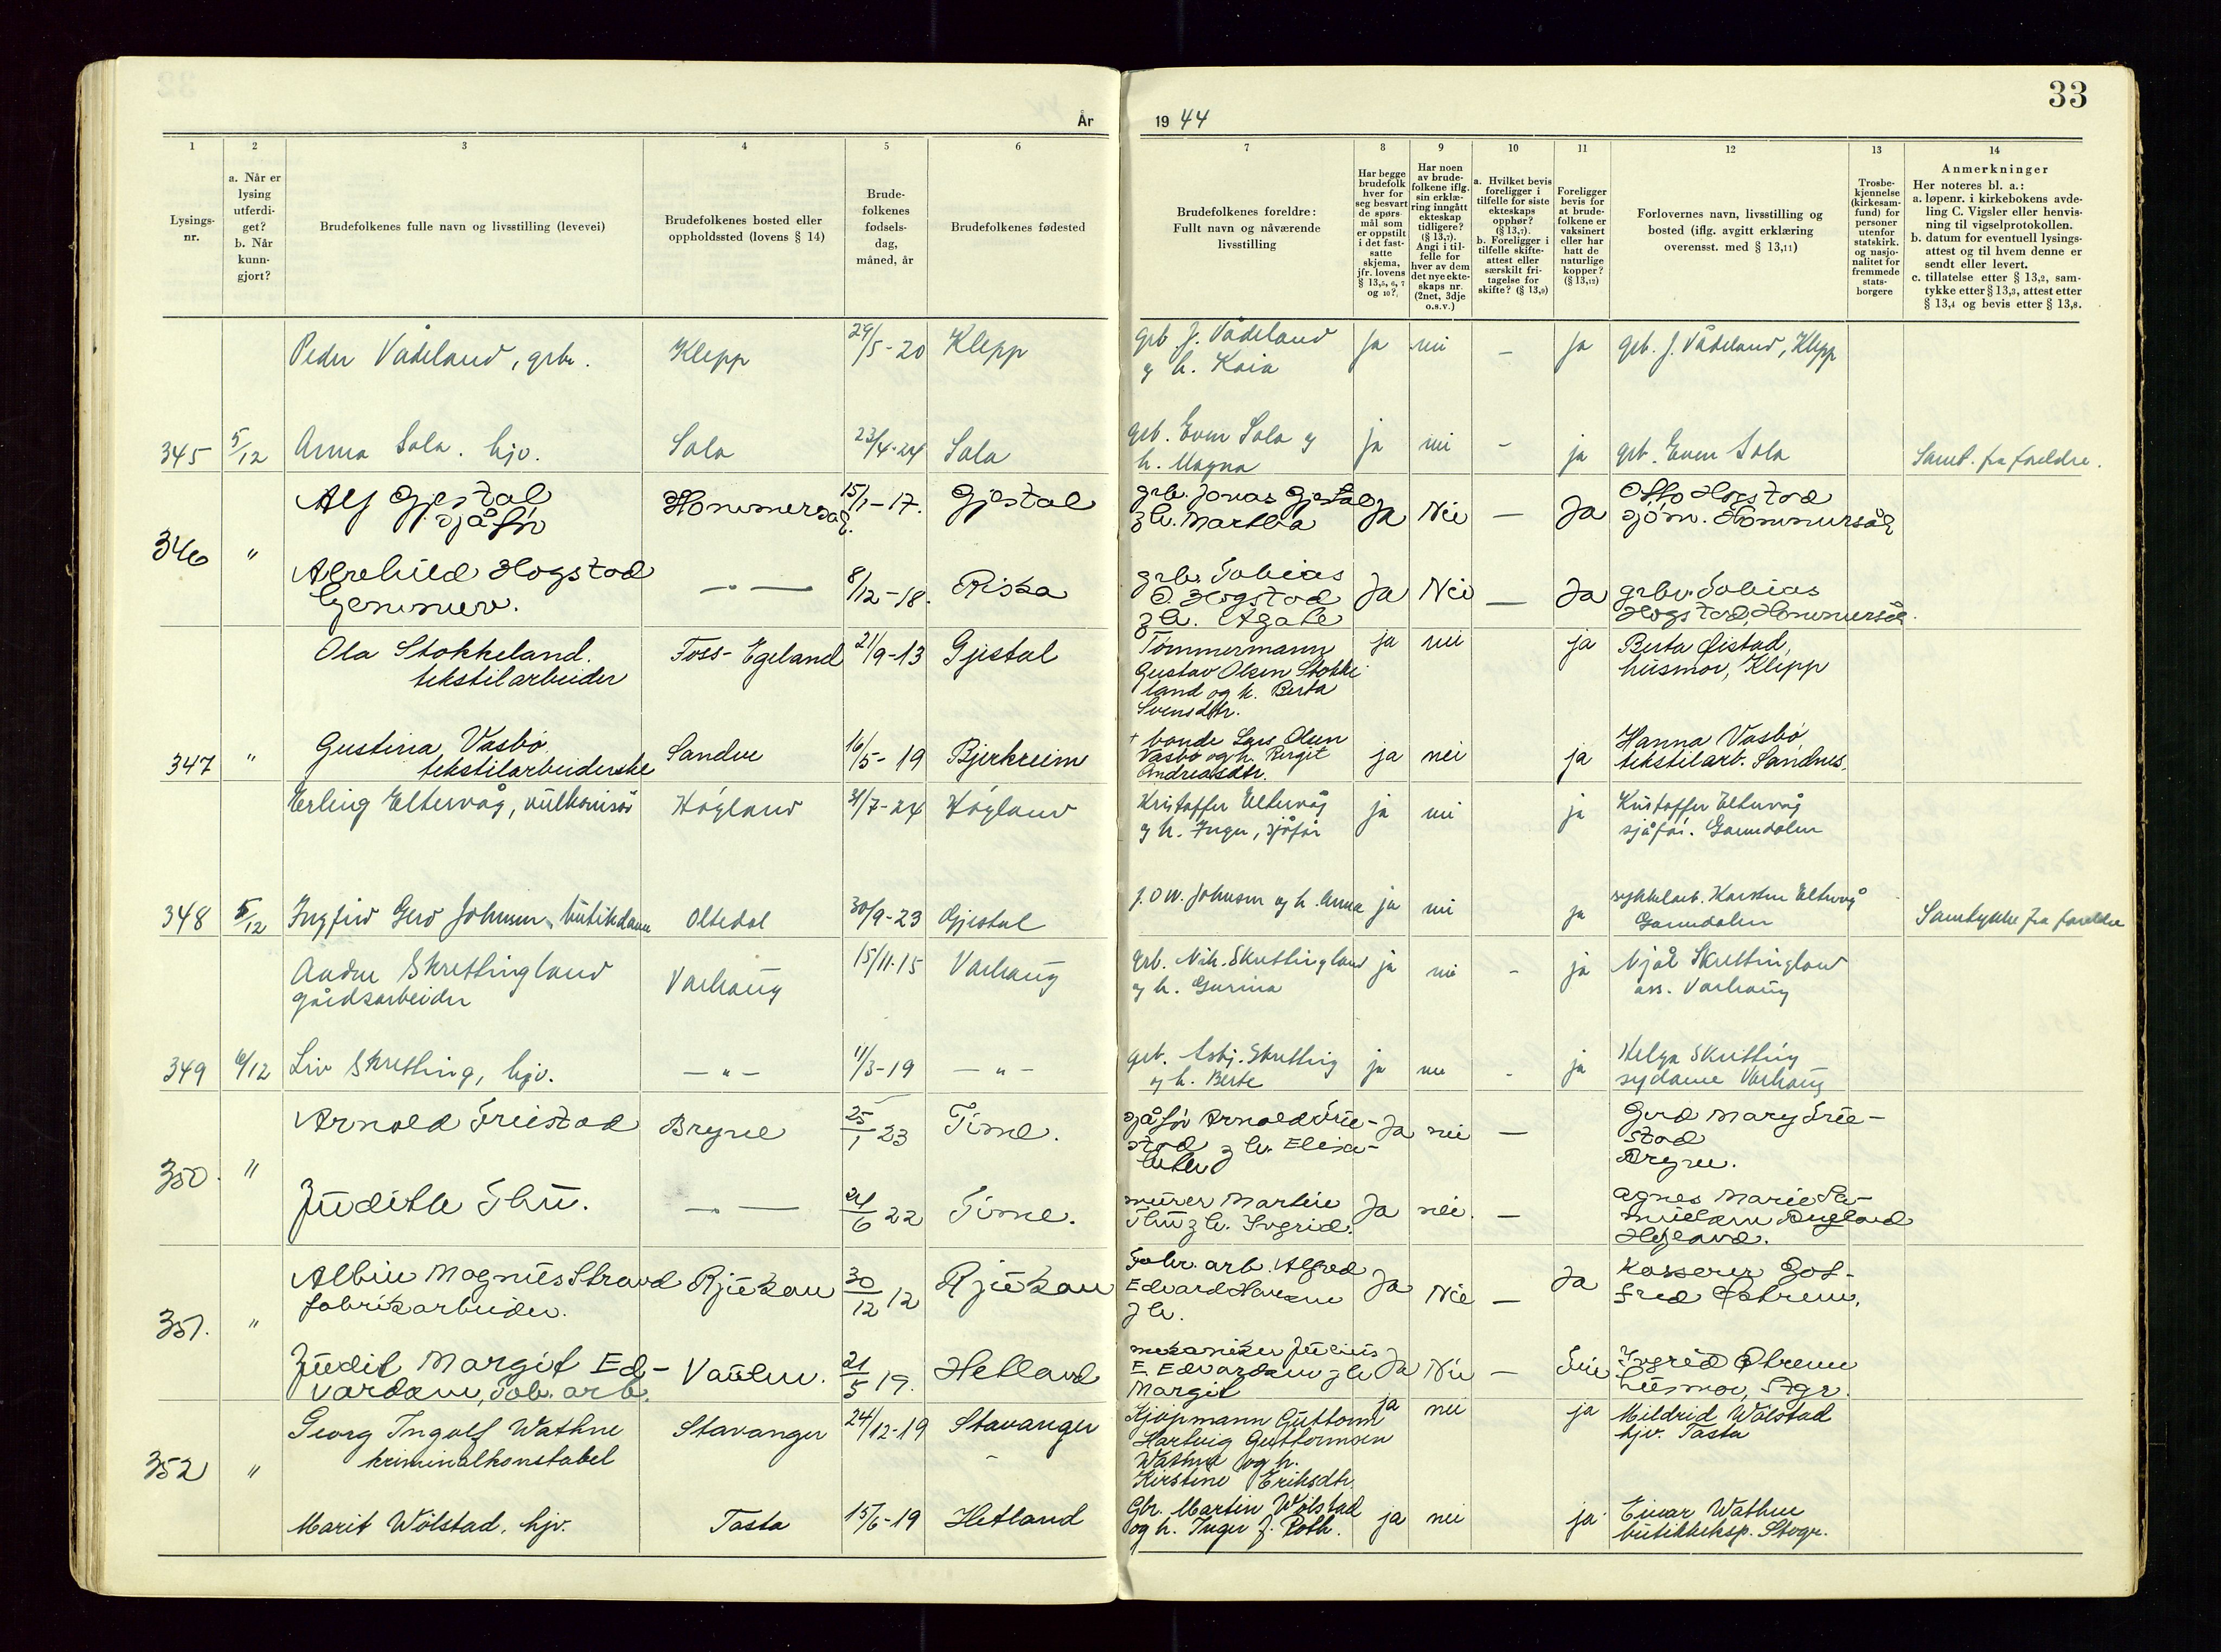 33
År
19 44
1
2
3
4
5
6
7
8
9
10
11
12
13
14
Lysings-
nr.
a. Når er
lysing
utferdi-
get?
b. Når
kunn-
gjort?
Brudefolkenes fulle navn og livsstilling (levevei)
Brudefolkenes bosted eller
oppholdssted (lovens § 14)
Brude-
folkenes
fødsels-
dag,
måned, år
Brudefolkenes fødested
Brudefolkenes foreldre:
Fullt navn og nåværende
livsstilling
Har begge
brudefolk
hver for
seg besvart
de spørs-
mål som
er oppstilt
i det fast-
satte
skjema,
jfr. lovens
§ 13,5, 6, 7
og 10?,
Har noen
av brude-
folkene iflg.
sin erklæ-
ring inngått
ekteskap
tidligere?
(§ 13,7).
Angi i til-
felle for
hver av dem
det nye ekte-
skaps nr.
(2net, 3dje
o.s.v.)
a. Hvilket bevis
foreligger i
tilfelle for siste
ekteskaps
opphør?
(§ 13,7).
b. Foreligger i
tilfelle skifte-
attest eller
særskilt fri-
tagelse for
skifte? (§ 13,9)
Foreligger
bevis for
at brude-
folkene er
vaksinert
eller har
hatt de
naturlige
kopper?
(§ 13,12)
Forlovernes navn, livsstilling og
bosted (iflg. avgitt erklæring
overensst. med § 13,11)
Trosbe-
kjennelse
(kirkesam-
fund) for
personer
utenfor
statskirk.
og nasjo-
nalitet for
fremmede
stats-
borgere
Anmerkninger
Her noteres bl. a.:
a. løpenr. i kirkebokens avde-
ling C. Vigsler eller henvis-
ning til vigselprotokollen.
b. datum for eventuell lysings-
attest og til hvem denne er
sendt eller levert.
c. tillatelse etter § 13,2, sam-
tykke etter § 13,3, attest etter
§ 13,4 og bevis etter § 13,8.
Peder Vådeland, grbr. Klepp 29/5-20 Klepp grb J. Vådeland ja nei - ja grb. J. Vådeland, Klepp
g h. Kaia
345 5/12 Anna Sola. hjv. Sola 23/4-24 Sola grb. Even Sola g ja nei - ja grb. Even Sola Samt. fra foreldre.
h. Magna
Alf Gjestal Hommersåk. 15/1-17. Gjestal grb. Jonas Gjestal Ja Nei — Ja Otto Hogstad
sjåfør g h. Martha sjøm. Hommersåk
346 " Alvhild Hogstad —"— 8/12-18. Riska grb. Tobias Ja Nei — Ja grbr. Tobias
hjemmev. O. Hogstad Hogstad, Hommersåk.
g h. Agate
Ola Stokkeland. Foss-Egeland 21/9-13 Gjestal Tømmermann ja nei ja Berta Øistad,
tekstilarbeider Gustav Olsen Stokke husmor, Klepp
land og h. Berta
Svensdtr.
347 " Gustina Vasbø Sandve 16/5-19 Bjerkreim + bonde Lars Olsen ja nei ja Hanna Vasbø
tekstilarbeiderske Vasbø og h. Birgit tekstilarb. Sandnes.
Andreasdtr.
Erling Eltervåg, vulkanisør Høgland 31/7-24 Høgland Kristoffer Eltervåg ja nei ja Kristoffer Eltervåg
g h. Inger, sjåfør sjåfør.
348 5/12 Ingfrid Gerd Johnsen, butikdame Oltedal 30/9-23 Gjestal J. O W. Johnsen og h. Anna ja nei ja Karsten Eltervåg Samtykke fra foreldre
Audun Skretting­land Varhaug 15/11-15 Varhaug grb. Nik. Skrettingland ja nei - ja Njål Skrettingland
gårdsarbeider g h. Gurina ass. Varhaug
349 6/12 Liv Skretting, hjv. —"— 11/3-19 —"— grb. Asbj. Skretting ja nei - ja Helga Skretting
g h. Berte sydame Varhaug
Arnold Friestad Bryne 25/1 23 Time. sjåfør Arnold Frie- Ja nei — Gerd Mary Frie-
stad g h. Elisa- stad
beth Bryne.
350. " Judith Thu. —"— 24/6 22 Time. murer Martin Ja nei. — Agnes Marie Sa-
Thu g h. Ingrid.
Albin Magnus Strand Rjukan 30/12 12 Rjukan Fabr. arb. Alfred Ja Nei — Ja Kasserer Got-
fabrikarbeider. Edvard fred
g h.
351. " Judit Margit Ed- Vaulen. 21/5 19. Hetland mekaniker Julius Ja Nei — Ingrid
vardsen, Fab. arb. E Edvardsen g h husmor, Stgr.
Margit
Georg Ingolf Wathne Stavanger 24/12-19 Stavanger Kjøpmann Guttorm ja nei ja Mildrid Wølstad
kriminalkonstabel Hartvig Guttormsen hjv. Tasta
Wathne og h.
Kirstine Eriksdtr.
352 " Marit Wølstad, hjv. Tasta 15/6-19 Hetland Gbr. Martin Wølstad ja nei ja Einar Wathne
og h. Inger f. Roth. butikkeksp. Stvgr.